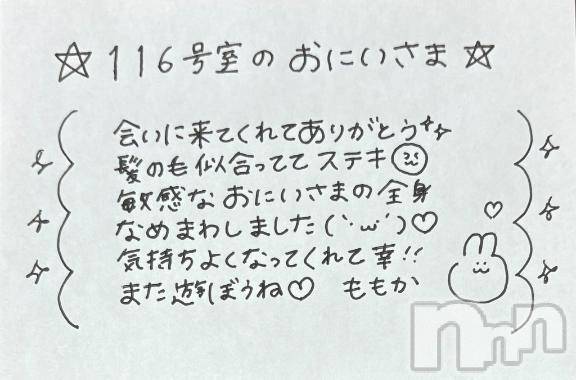 ☆116号室の おにいさま☆
会いに来てくれてありがとう
髪の毛似合ってて ステキ
敏感な おにいさまの全身
なめまわしました(´･ω･`)♡
気持ちよくなってくれて幸!!
また遊ぼうね♡ ももか
nnn